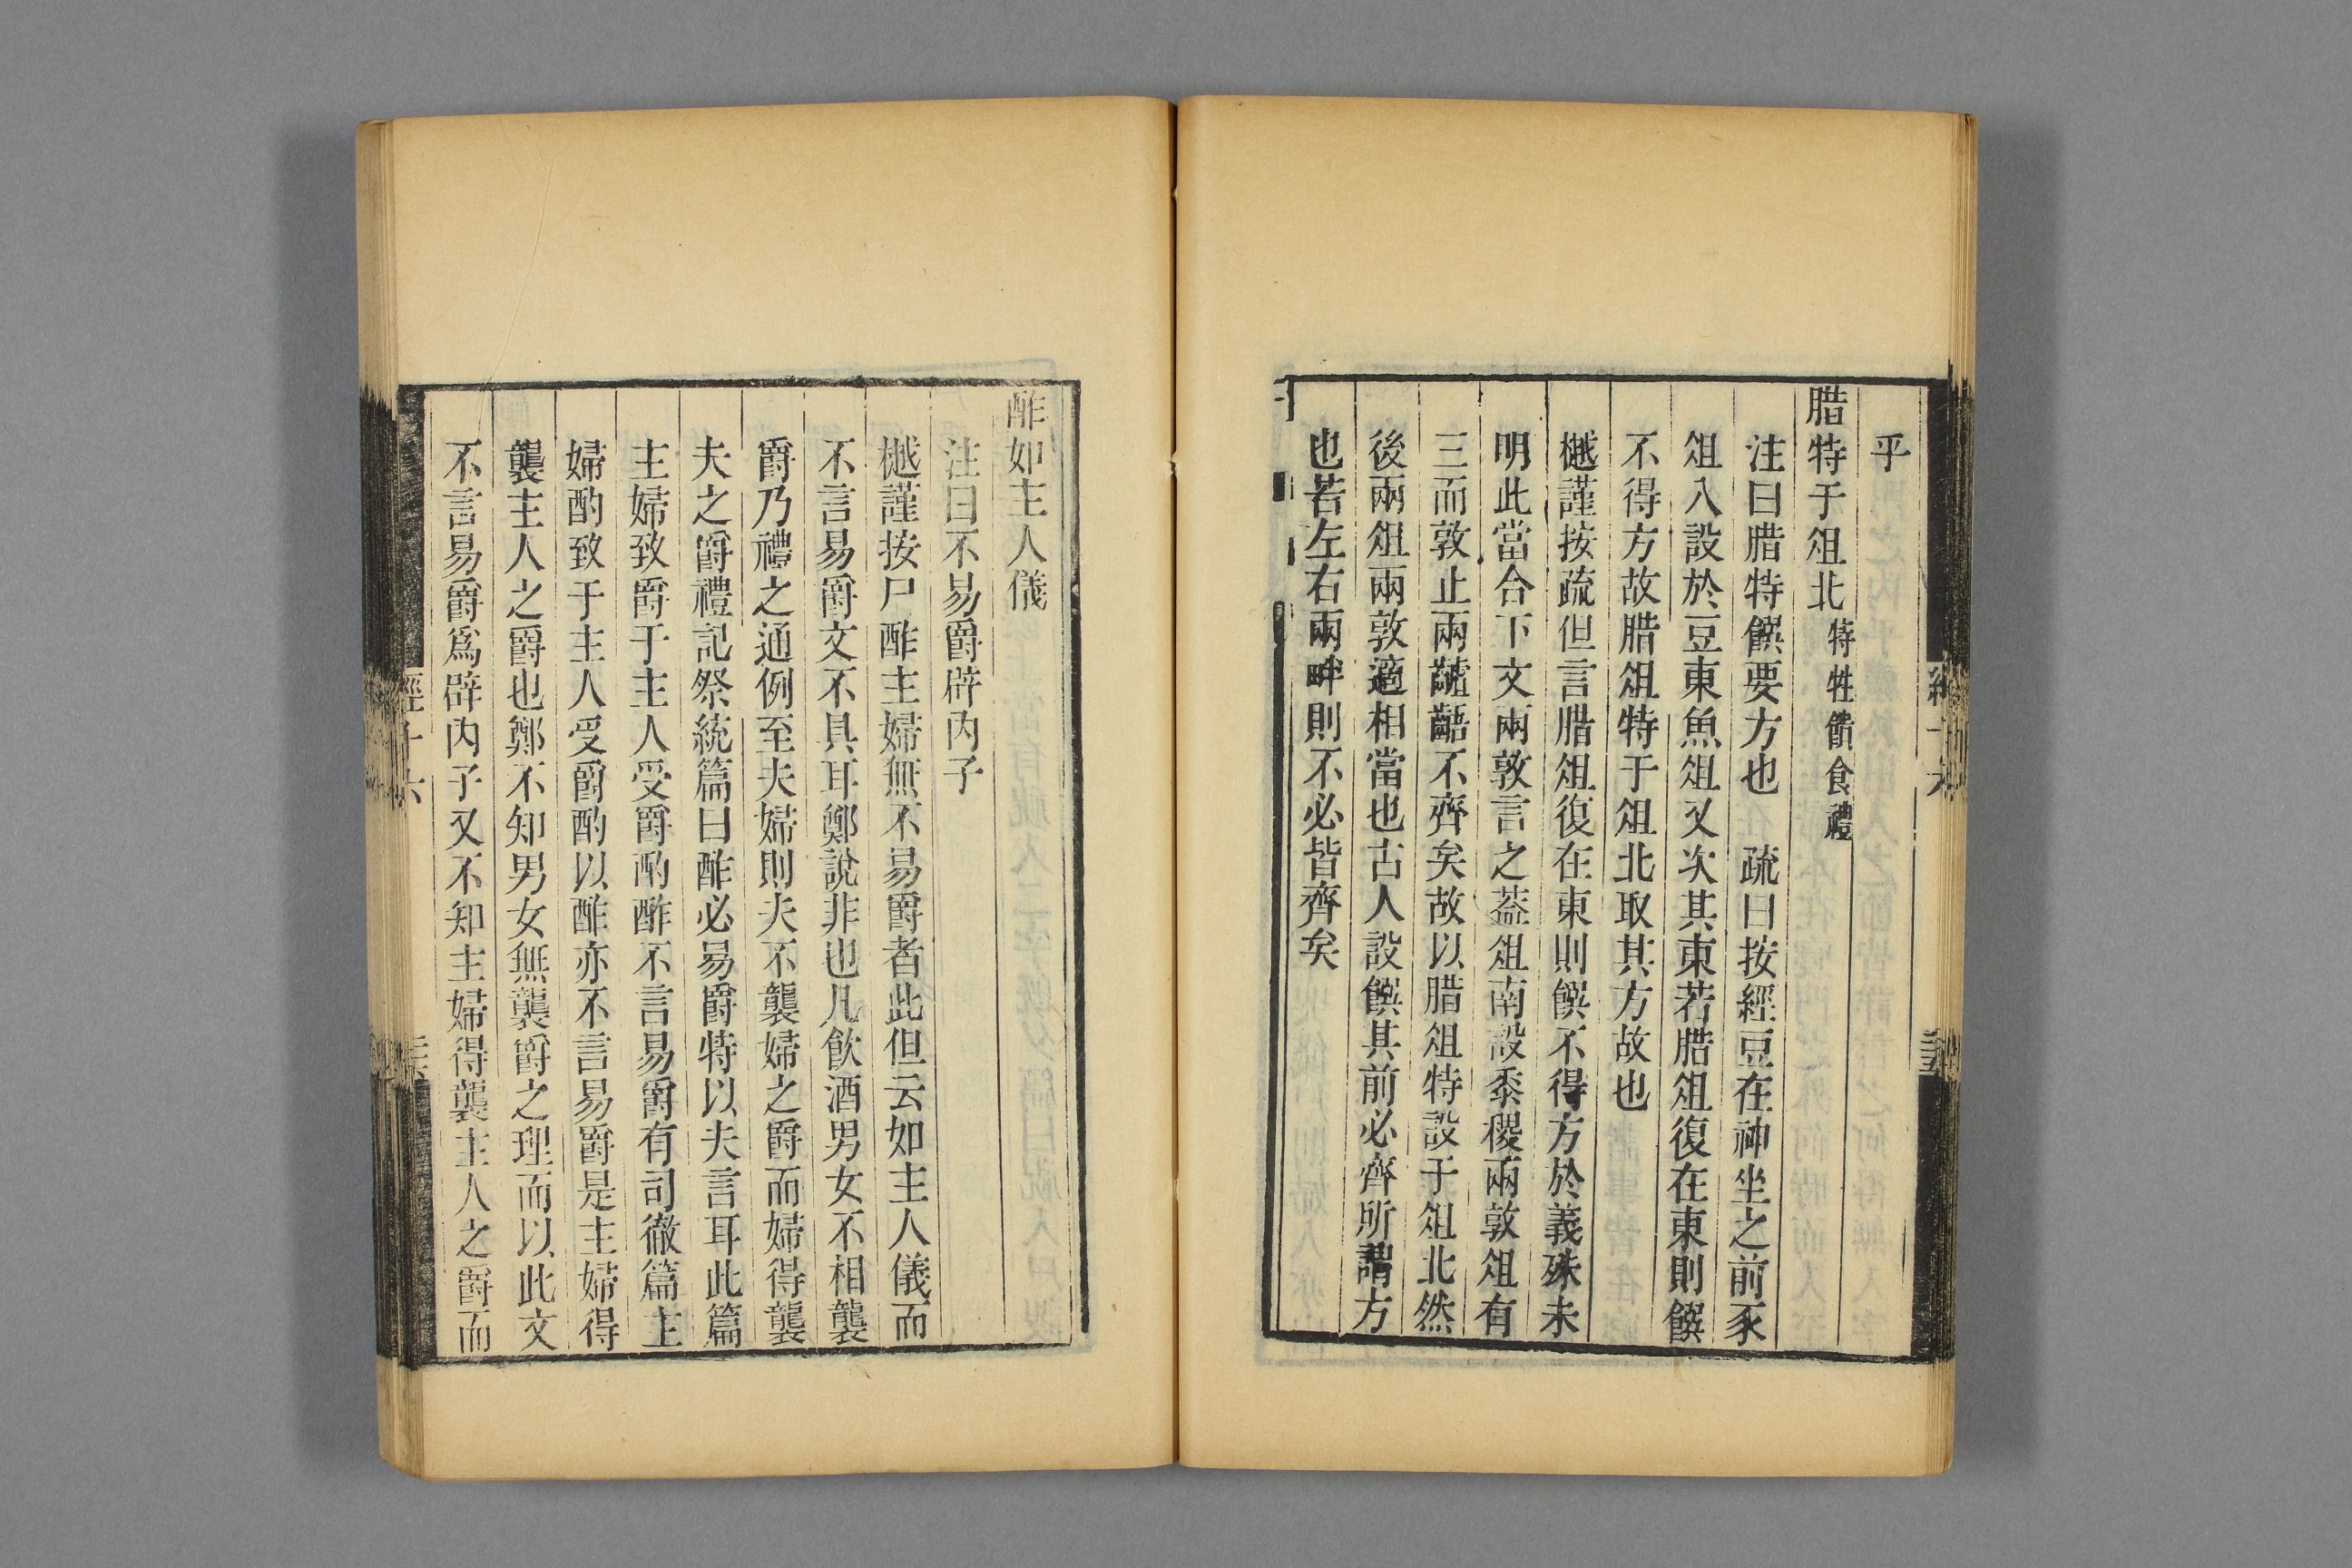 乎
腊特于俎北特牲饋食禮
注曰腊特饌要方也　疏曰按經豆在神坐之前豕
俎入設於豆東魚俎又次其東若腊俎復在東則饌
不得方故腊俎特于俎北取其方故也
樾謹按疏但言腊俎復在東則饌不得方於義殊未
明此當合下文兩敦言之葢俎南設黍稷兩敦俎有
三而敦止兩齇齬不齊矣故以腊俎特設于俎北然
後兩俎兩敦適相當也古人設饌其前必齊所謂方
也若左右兩畔則不必皆齊矣
酢如主人儀
注曰不易爵辟內子
樾謹按尸酢主婦無不易爵者此但云如主人儀而
不言易爵文不具耳鄭說非也凡飲酒男女不相襲
爵乃禮之通例至夫婦則夫不襲婦之爵而婦得襲
夫之爵禮記祭統篇曰酢必易爵特以夫言耳此篇
主婦致爵于主人受爵酌酢不言易爵有司徹篇主
婦酌致于主人受爵酌以酢亦不言易爵是主婦得
襲主人之爵也鄭不知男女無襲爵之理而以此文
不言易爵爲辟內子又不知主婦得襲主人之爵而
經十六